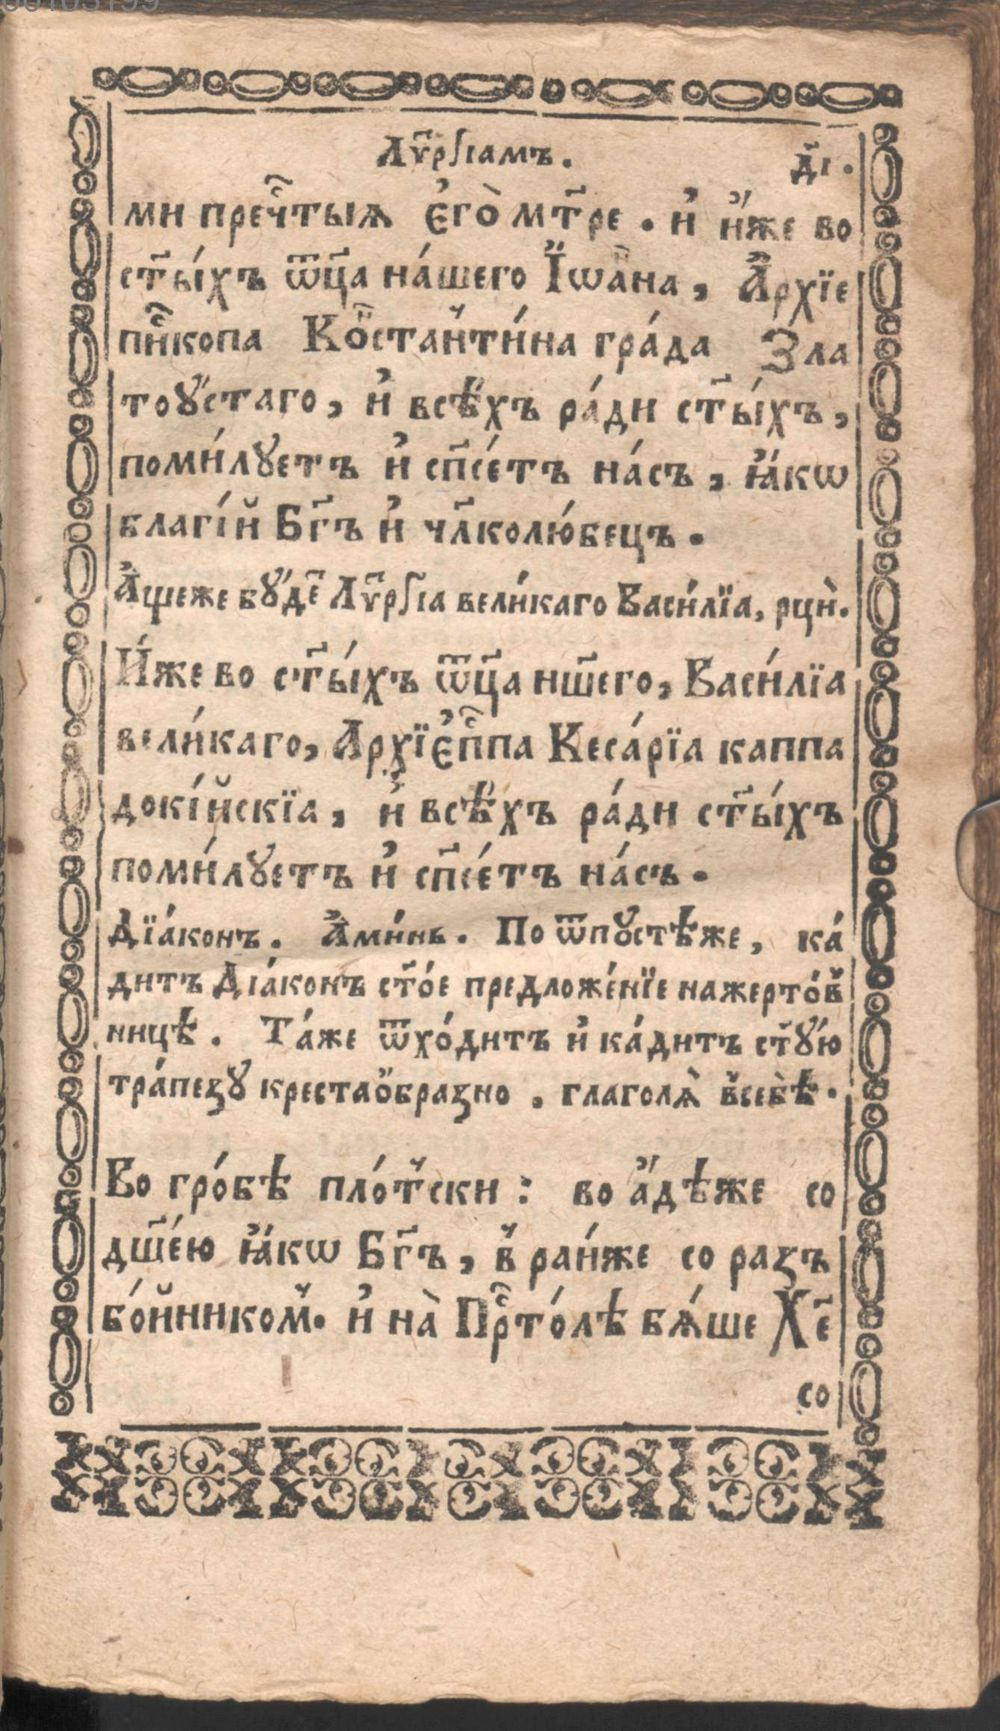 Лѵ҃рѓїамъ. д҃і.
ми преч҃тыѧ є҆гѡ̀ мт҃ре. и҆ и҆́же во
ст҃ы́хъ ѿц҃а на́шего І҆ѡа́нна, А҆рхїе
пи҃копа Ко҃стаⷩ҇ти́на гра́да Зла
тоꙋ́стаго, и҆ всѣ́хъ ра́ди ст҃ы́хъ,
поми́лꙋетъ и҆ сп҃се́тъ на́съ, ꙗ҆́кѡ
благі́й Бг҃ъ и҆ чл҃колю́бецъ.
А҆́щеже бꙋ́де҃ Лѵ҃рѓїа вели́каго Васи́лїа, рцѝ.
И҆́же во ст҃ы́хъ ѿц҃а нш҃его, Васи́лїа
вели́каго, А҆рхїє҆п҃па Кеса́рїа каппа
докі́йскїа, и҆ всѣ́хъ ра́ди ст҃ы́хъ
поми́лꙋетъ и҆ сп҃се́тъ на́съ.
Дїа́конъ. А҆ми́нь. По ѿпꙋстѣ́же, ка́
дитъ Дїа́конъ ст҃о́е предложе́нїе нажерто́в
ницѣ. Та́же ѿхо́дитъ и҆ ка́дитъ ст҃ꙋ́ю
тра́пезꙋ крестаѻбразно, глаголѧ̀ всебѣ̀.
Во гро́бѣ пло́тски: во а҆́дѣже со
дш҃е́ю ꙗ҆́кѡ Бг҃ъ, в раи́же со разъ
бо́йником. и҆ на̀ Пр҃то́лѣ бѧ́ше Х҃е
со